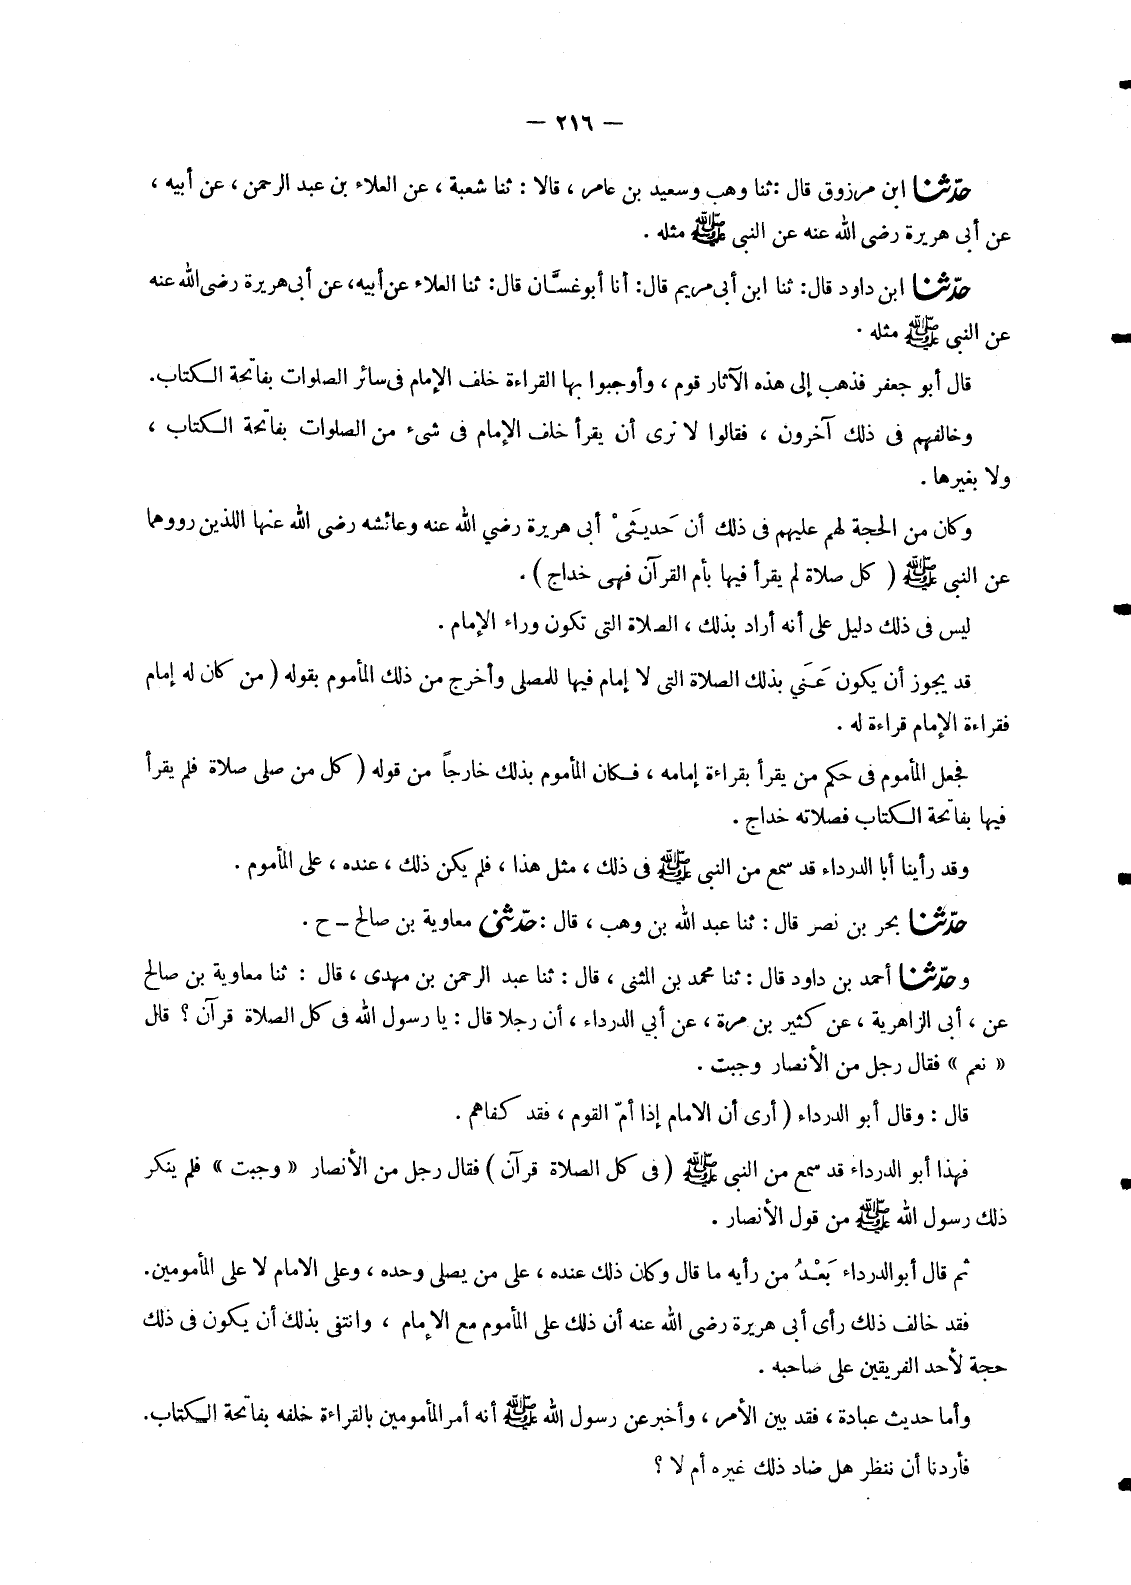 — ٢١٦ —
حدّثنا ابن مرزوق قال : ثنا وهب وسعيد بن عامر ، قالا : ثنا شعبة ، عن العلاء بن عبد الرحمن ، عن أبيه ،
عن أبى هريرة رضى الله عنه عن النبى ﷺ مثله .
حدّثنا ابن داود قال : ثنا ابن أبى مريم قال : أنا أبو غسَّان قال : ثنا العلاء عن أبيه ، عن أبى هريرة رضى الله عنه
عن النبى ﷺ مثله .
قال أبو جعفر فذهب إلى هذه الآثار قوم ، وأوجبوا بها القراءة خلف الإمام فى سائر الصلوات بفاتحة الكتاب .
وخالفهم فى ذلك آخرون ، فقالوا لا نرى أن يقرأ خلف الإمام فى شىء من الصلوات بفاتحة الكتاب ،
ولا بغيرها .
وكان من الحجة لهم عليهم فى ذلك أن حَديثَىْ أبى هريرة رضي الله عنه وعائشه رضى الله عنها اللذين رووهما
عن النبى ﷺ ( كل صلاة لم يقرأ فيها بأم القرآن فهى خداج ) .
ليس فى ذلك دليل على أنه أراد بذلك ، الصلاة التى تكون وراء الإمام .
قد يجوز أن يكون عَنَي بذلك الصلاة التى لا إمام فيها للمصلى وأخرج من ذلك المأموم بقوله ( من كان له إمام
فقراءة الإمام قراءة له .
فجعل المأموم فى حكم من يقرأ بقراءة إمامه ، فكان المأموم بذلك خارجاً من قوله ( كل من صلى صلاة فلم يقرأ
فيها بفاتحة الكتاب فصلاته خداج .
وقد رأينا أبا الدرداء قد سمع من النبى ﷺ فى ذلك ، مثل هذا ، فلم يكن ذلك ، عنده ، على المأموم .
حدّثنا بحر بن نصر قال : ثنا عبد الله بن وهب ، قال : حدّثنى معاوية بن صالح – ح .
وحدّثنا أحمد بن داود قال : ثنا محمد بن المثنى ، قال : ثنا عبد الرحمن بن مهدى ، قال : ثنا معاوية بن صالح
عن ، أبى الزاهرية ، عن كثير بن مرة ، عن أبي الدرداء ، أن رجلا قال : يا رسول الله فى كل الصلاة قرآن ؟ قال
« نعم » فقال رجل من الأنصار وجبت .
قال : وقال أبو الدرداء ( أرى أن الامام إذا أمّ القوم ، فقد كفاهم .
فهذا أبو الدرداء قد سمع من النبى ﷺ ( فى كل الصلاة قرآن ) فقال رجل من الأنصار « وجبت » فلم ينكر
ذلك رسول الله ﷺ من قول الأنصار .
ثم قال أبو الدرداء بَعْدُ من رأيه ما قال وكان ذلك عنده ، على من يصلى وحده ، وعلى الامام لا على المأمومين .
فقد خالف ذلك رأى أبى هريرة رضى الله عنه أن ذلك على المأموم مع الإمام ، وانتفى بذلك أن يكون فى ذلك
حجة لأحد الفريقين على صاحبه .
وأما حديث عبادة ، فقد بين الأمر ، وأخبر عن رسول الله ﷺ أنه أمر المأمومين بالقراءة خلفه بفاتحة الكتاب .
فأردنا أن ننظر هل ضاد ذلك غيره أم لا ؟